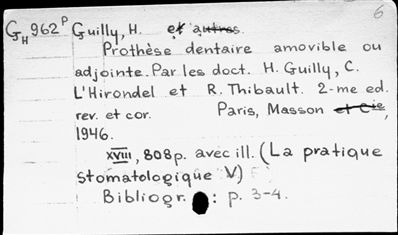 6
G_H 962 P Guilly, H. et autres.
Prothèse dentaire amovible ou
adjointe. Par les doct. H. Guilly, C.
L'Hirondel et R. Thibault. 2-me ed.
rev. et cor. Paris, Masson et Cie,
1946.
XVIII, 808 p. avec ill. (La pratique
stomatologique V)
Bibliogr. : p. 3-4.